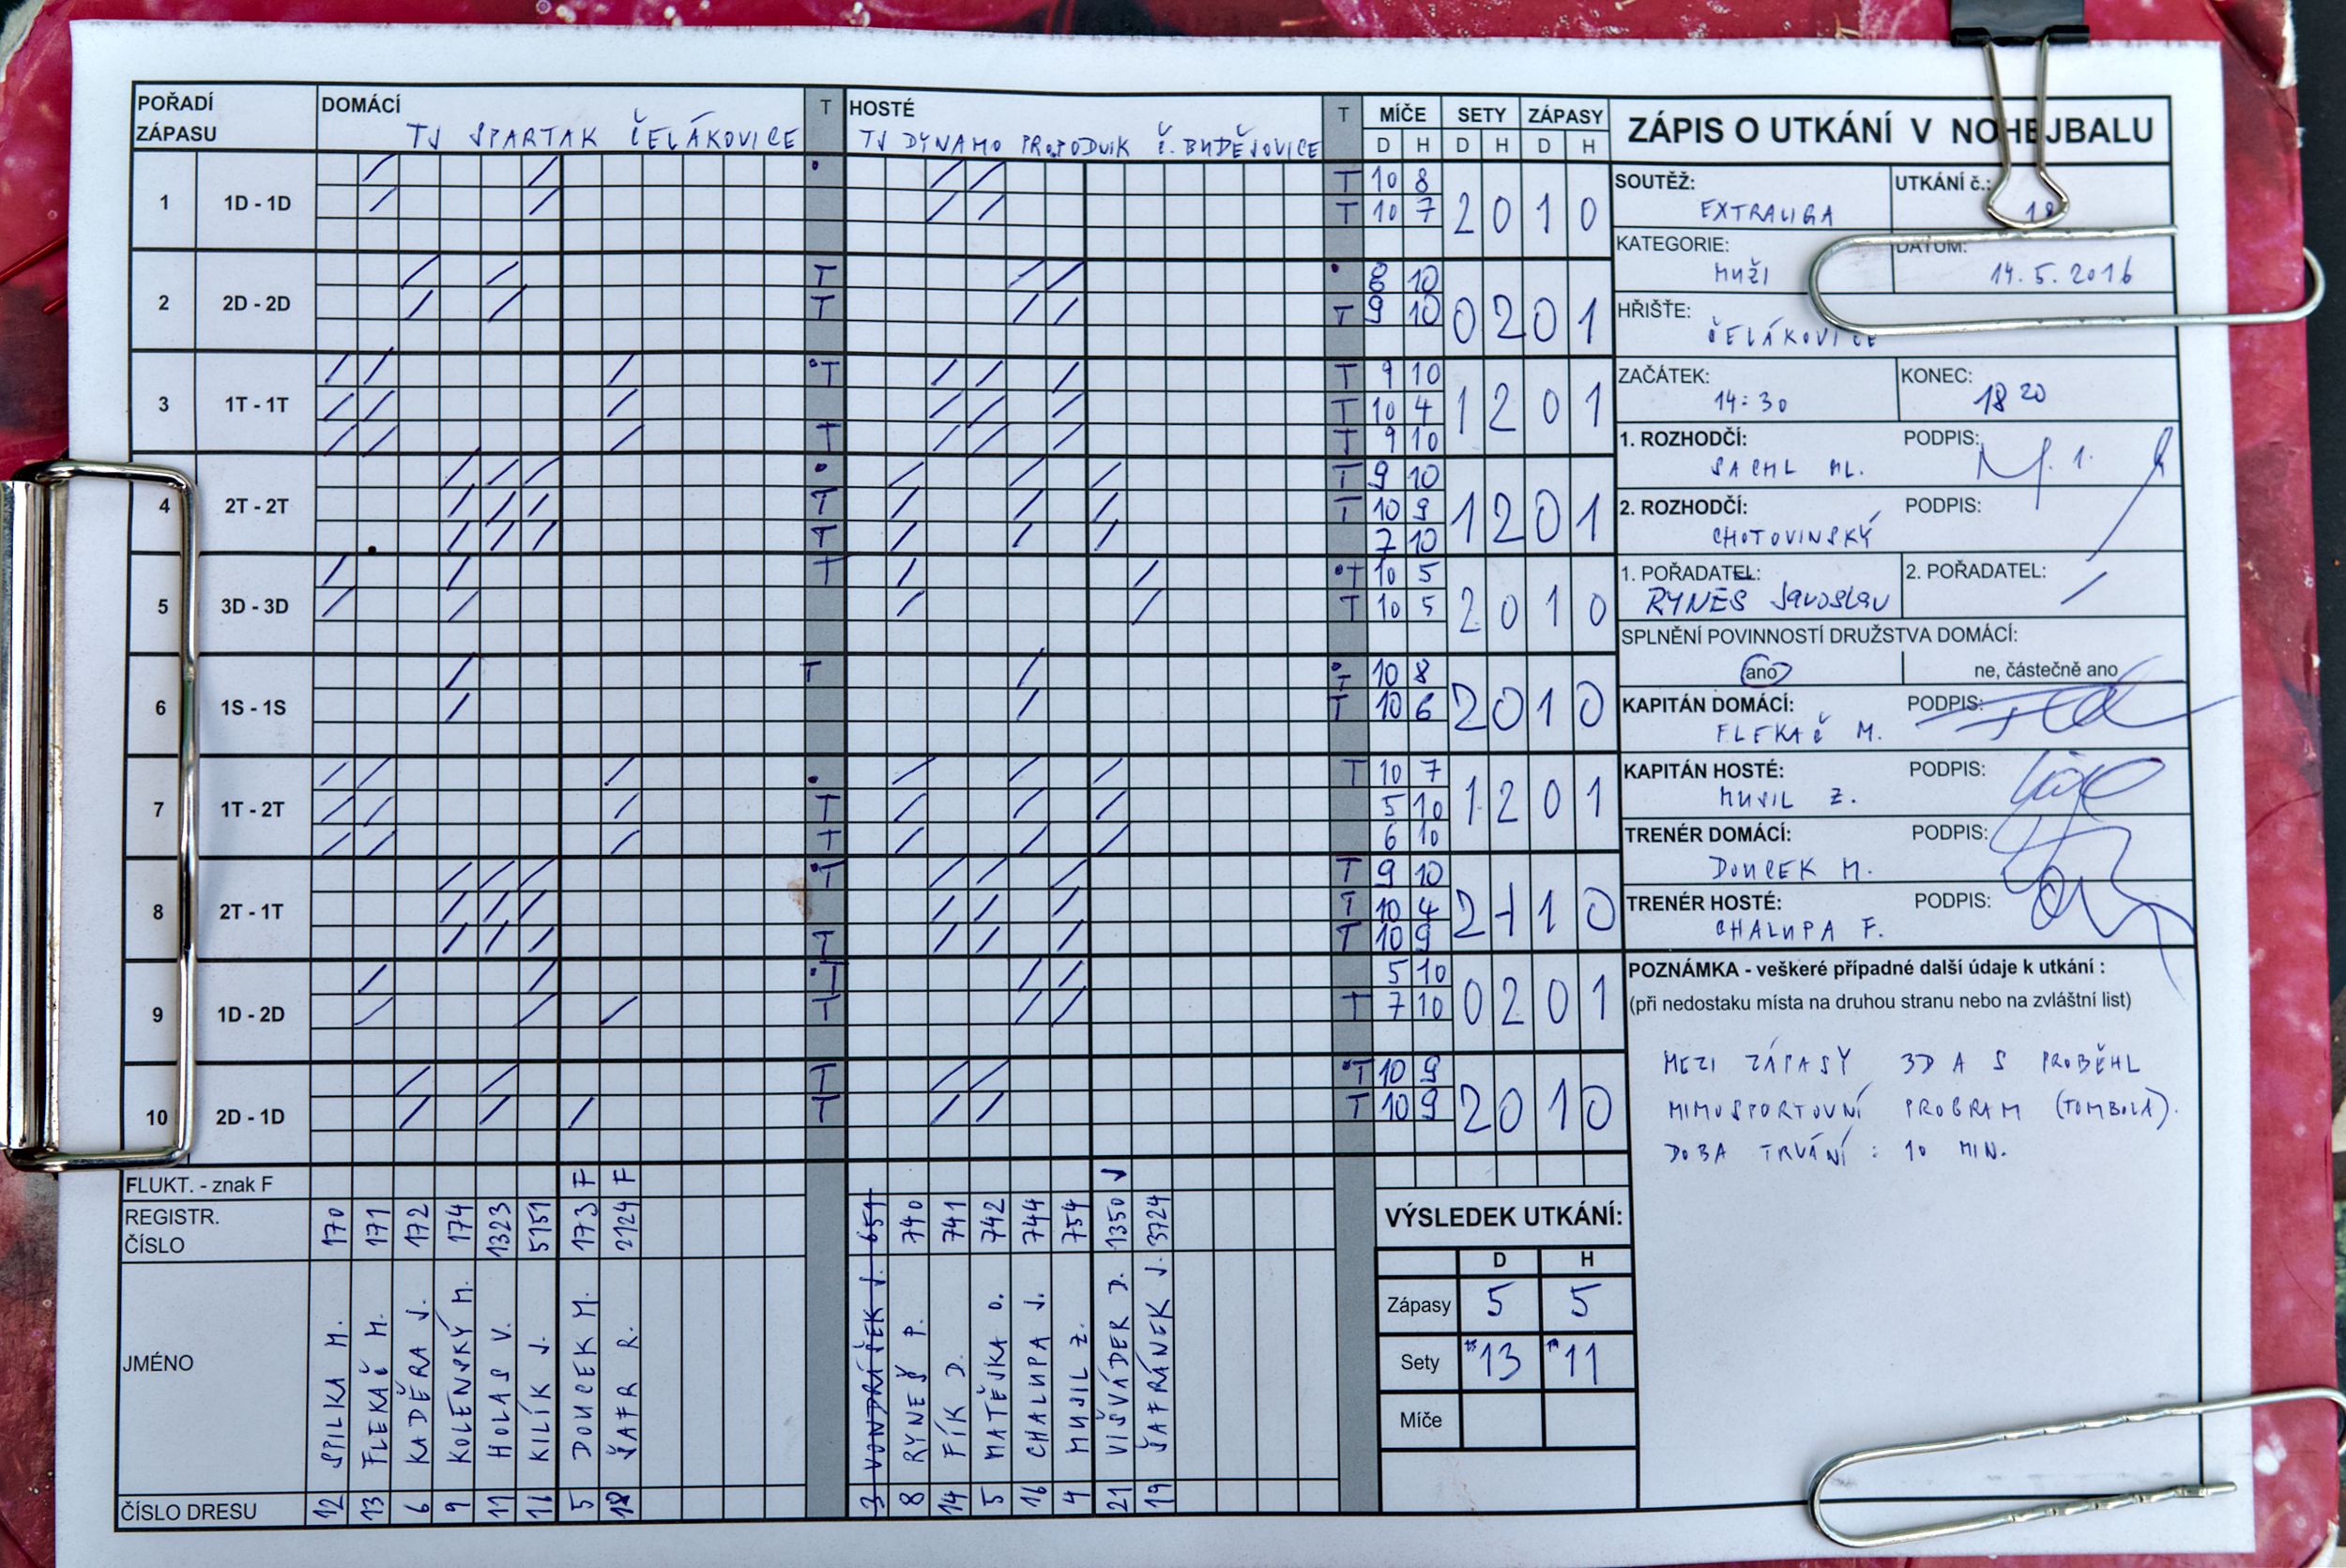 POŘADÍ ZÁPASU DOMÁCÍ T HOSTÉ T MÍČE SETY ZÁPASY
TJ SPARTAK ČELÁKOVICE TJ DYNAMO Č. BUDĚJOVICE D H D H D H
1 1D - 1D T 10 8
T 10 7
2 0 1 0
2 2D - 2D T 8 10
T T 9 10
0 2 0 1
3 1T - 1T T T 9 10
T 10 4
T T 9 10
1 2 0 1
4 2T - 2T T 9 10
T T 10 9
T 7 10
1 2 0 1
5 3D - 3D T T 10 5
T 10 5
2 0 1 0
6 1S - 1S T T 10 8
T 10 6
2 0 1 0
7 1T - 2T T 10 7
T 5 10
T 6 10
1 2 0 1
8 2T - 1T T T 9 10
T 10 4
T T 10 9
2 1 1 0
9 1D - 2D T 5 10
T T 7 10
0 2 0 1
10 2D - 1D T T 10 9
T T 10 9
2 0 1 0
FLUKT. - znak F F F
REGISTR. ČÍSLO 170 171 172 174 1323 5151 173 2124 651 740 741 742 744 754 1350 3724
JMÉNO
SPILKA M.
FLEKAČ M.
KADĚRA J.
KOLENSKÝ M.
HOLAS V.
KILÍK J.
DOUCEK M.
ŠAFR R.
VONDRÁŠEK J.
RYNEŠ P.
FÍK D.
MATĚJKA O.
CHALUPA J.
MUSIL Z.
VIŠVÁDER D.
ŠAFRÁNEK J.
ČÍSLO DRESU 12 13 6 9 17 11 5 18 3 8 14 5 16 4 21 19
VÝSLEDEK UTKÁNÍ:
D H
Zápasy 5 5
Sety 13 11
Míče
ZÁPIS O UTKÁNÍ V NOHEJBALU
SOUTĚŽ: UTKÁNÍ č.:
EXTRALIGA 18
KATEGORIE: DATUM:
MUŽI 14.5.2016
HŘIŠTĚ:
ČELÁKOVICE
ZAČÁTEK: KONEC:
14:30 18 20
1. ROZHODČÍ: PODPIS:
SACHL ML.
2. ROZHODČÍ: PODPIS:
CHOTOVINSKÝ
1. POŘADATEL: 2. POŘADATEL:
RYNEŠ Jaroslav
SPLNĚNÍ POVINNOSTÍ DRUŽSTVA DOMÁCÍ:
ano ne, částečně ano
KAPITÁN DOMÁCÍ: PODPIS:
FLEKAČ M.
KAPITÁN HOSTÉ: PODPIS:
MUSIL Z.
TRENÉR DOMÁCÍ: PODPIS:
DOUCEK M.
TRENÉR HOSTÉ: PODPIS:
CHALUPA F.
POZNÁMKA - veškeré případné další údaje k utkání :
(při nedostaku místa na druhou stranu nebo na zvláštní list)
MEZI ZÁPASY 3D A S PROBĚHL
MIMOSPORTOVNÍ PROGRAM (TOMBOLA).
DOBA TRVÁNÍ : 10 MIN.